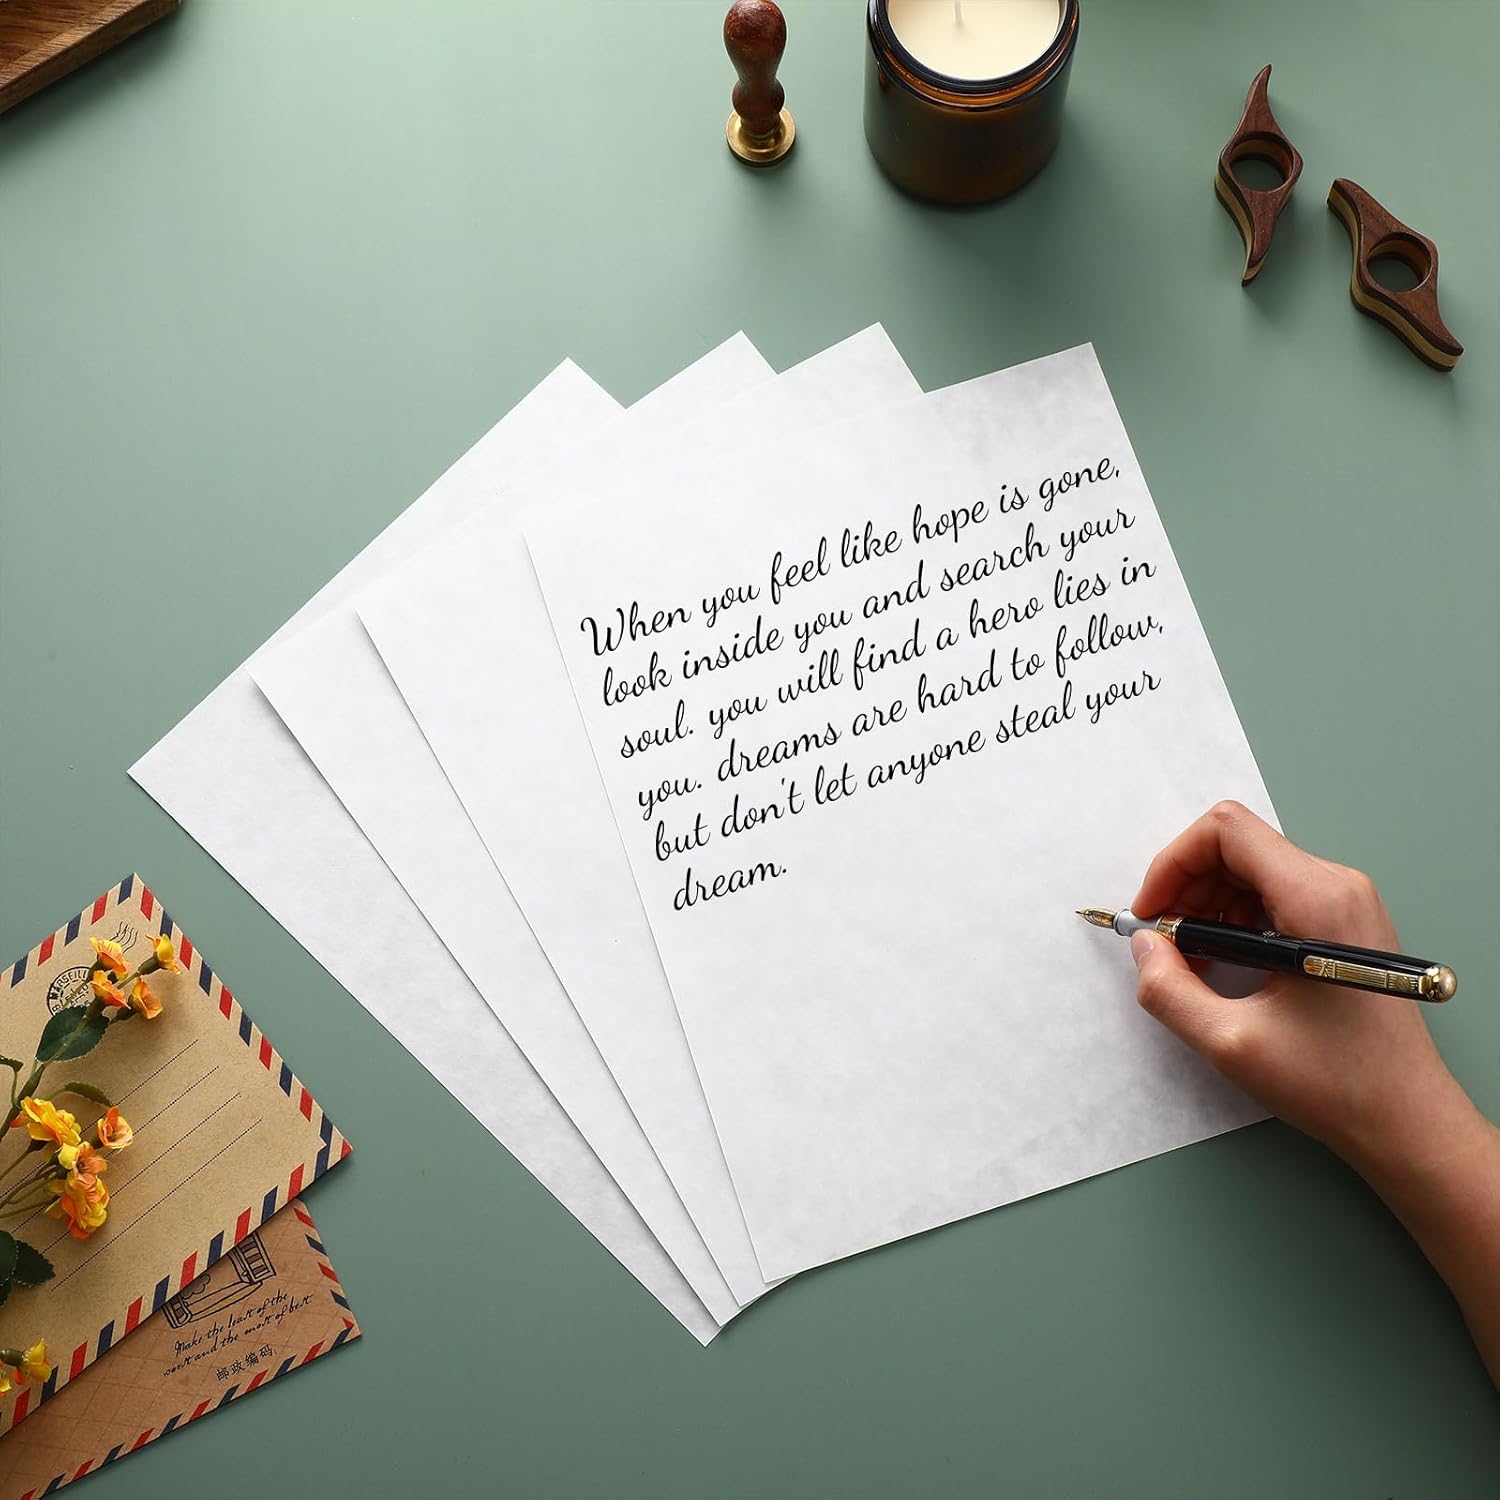 When you feel like hope is gone,
look inside you and search your
soul. you will find a hero lies in
you. dreams are hard to follow,
but don't let anyone steal your
dream.
MARSEILL
Make the least of the
worst and the most of best.
邮政编码: